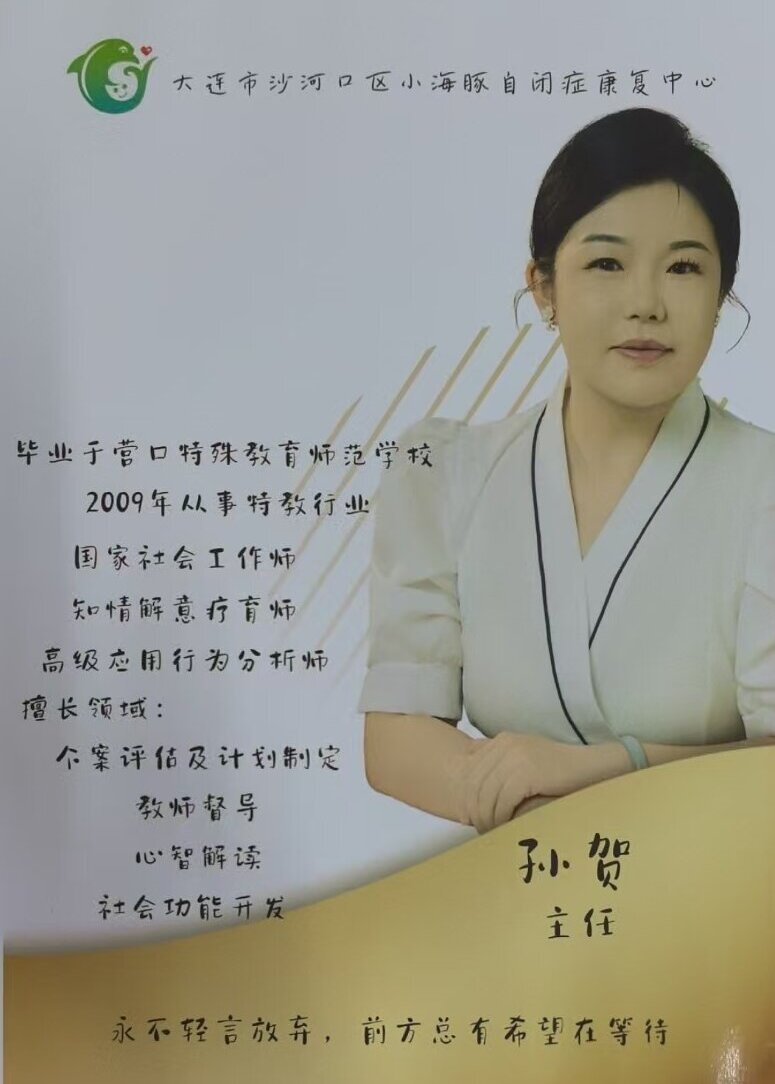 大连市沙河口区小海豚自闭症康复中心
毕业于营口特殊教育师范学校
2009年从事特教行业
国家社会工作师
知情解意疗育师
高级应用行为分析师
擅长领域：
个案评估及计划制定
教师督导
心智解读
社会功能开发
孙贺
主任
永不轻言放弃，前方总有希望在等待